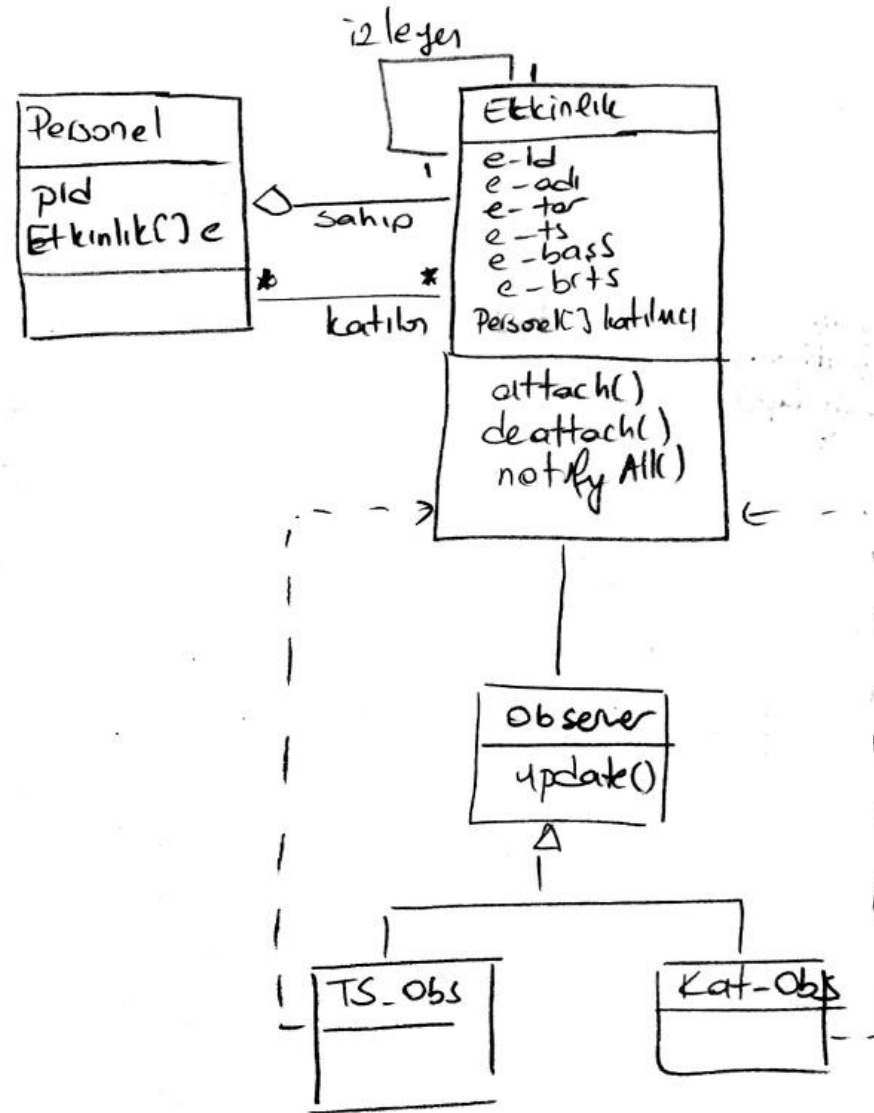 izleyen
1
Personel
pId
Etkinlik[] e
1
sahip
*
*
katılır
Etkinlik
e-Id
e-adı
e-tar
e-ts
e-basS
e-brts
Personel[] katılımcı
attach()
deattach()
notify All()
Observer
update()
TS_Obs
Kat-Obs